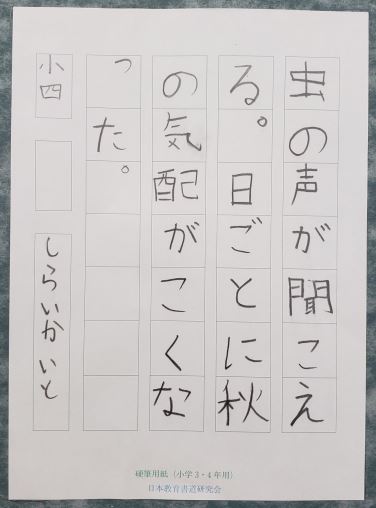 虫の声が聞こえ
る。日ごとに秋
の気配がこくな
った。
小四
しらいかいと
硬筆用紙（小学3・4年用）
日本教育書道研究会